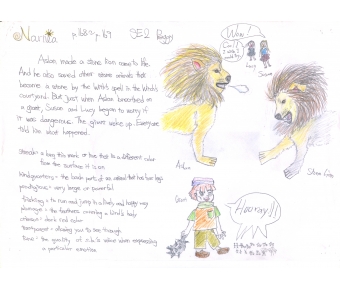 Narnia p.168~p.169 SE2
Aslan made a stone lion come to life.
And he also saved other stone animals that
become a stone by the Witch's spell in the Witch's
courtyard. But just when Aslan breathed on
a giant, Susan and Lucy began to worry if
it was dangerous. The giant woke up. Everyone
told him what happened.
Wow
Lucy
Susan
Aslan
Stone Lion
streak: a long thin mark or line that is a different color
from the surface it is on
hindquarters = the back parts of an animal that has four legs
prodigious = very large or powerful
to run and jump in a lively and happy way
plumage = the feathers covering a bird's body
crimson = dark red color
transparent = allowing you to see through
tone = the quality of voice when expressing
a particular emotion
Giant
Hooray!!!